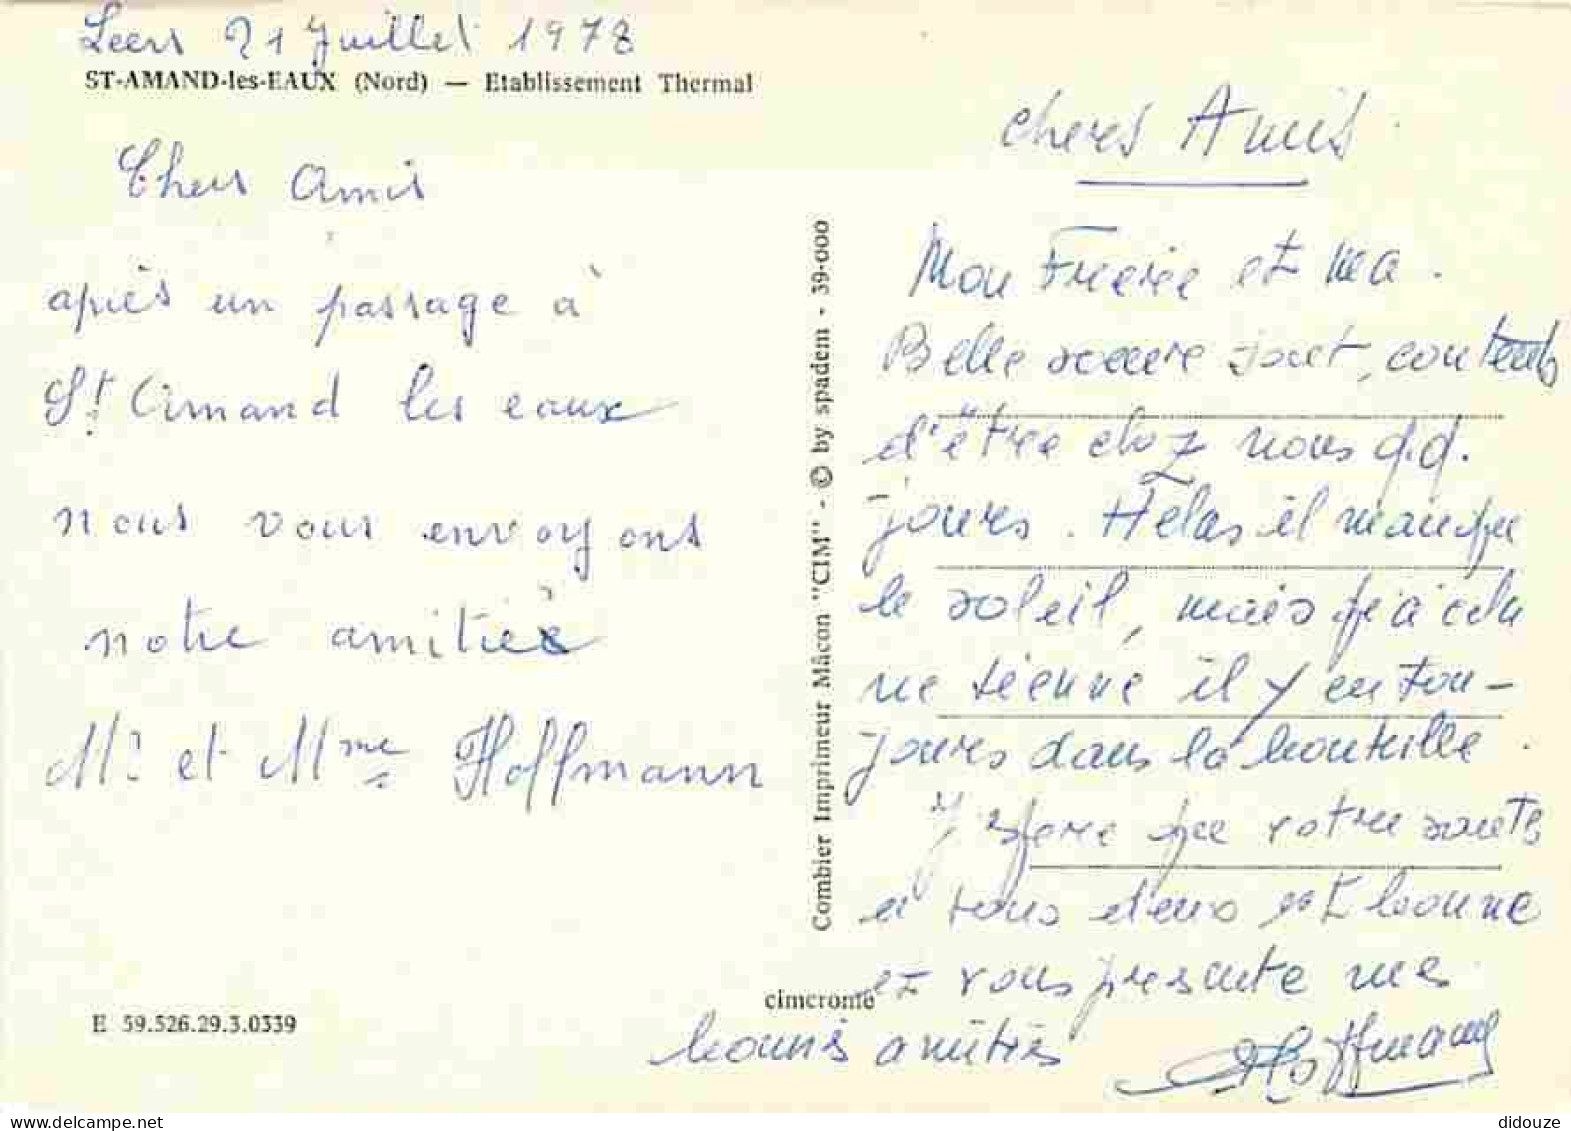 Leers 21 Juillet 1978
ST-AMAND-les-EAUX (Nord) — Etablissement Thermal
Chers Amis
après un passage à
St Amand les eaux
nous vous envoyons
notre amitiés
Mr et Mme Hoffmann
E 59.526.29.3.0339
Combier Imprimeur Mâcon "CIM" - © by spadem - 39-000
cimcrome
chers Amis
Mon Frere et ma
Belle soeure sont, contents
d'être chez nous q.q.
jours. Hélas il manque
le soleil, mais qu'a cela
ne tienne il y en tou-
jours dans la bouteille.
J'spere que votre santé
a tous deux est bonne
et vous presente mes
bonnes amitiés Hoffmann
didouze